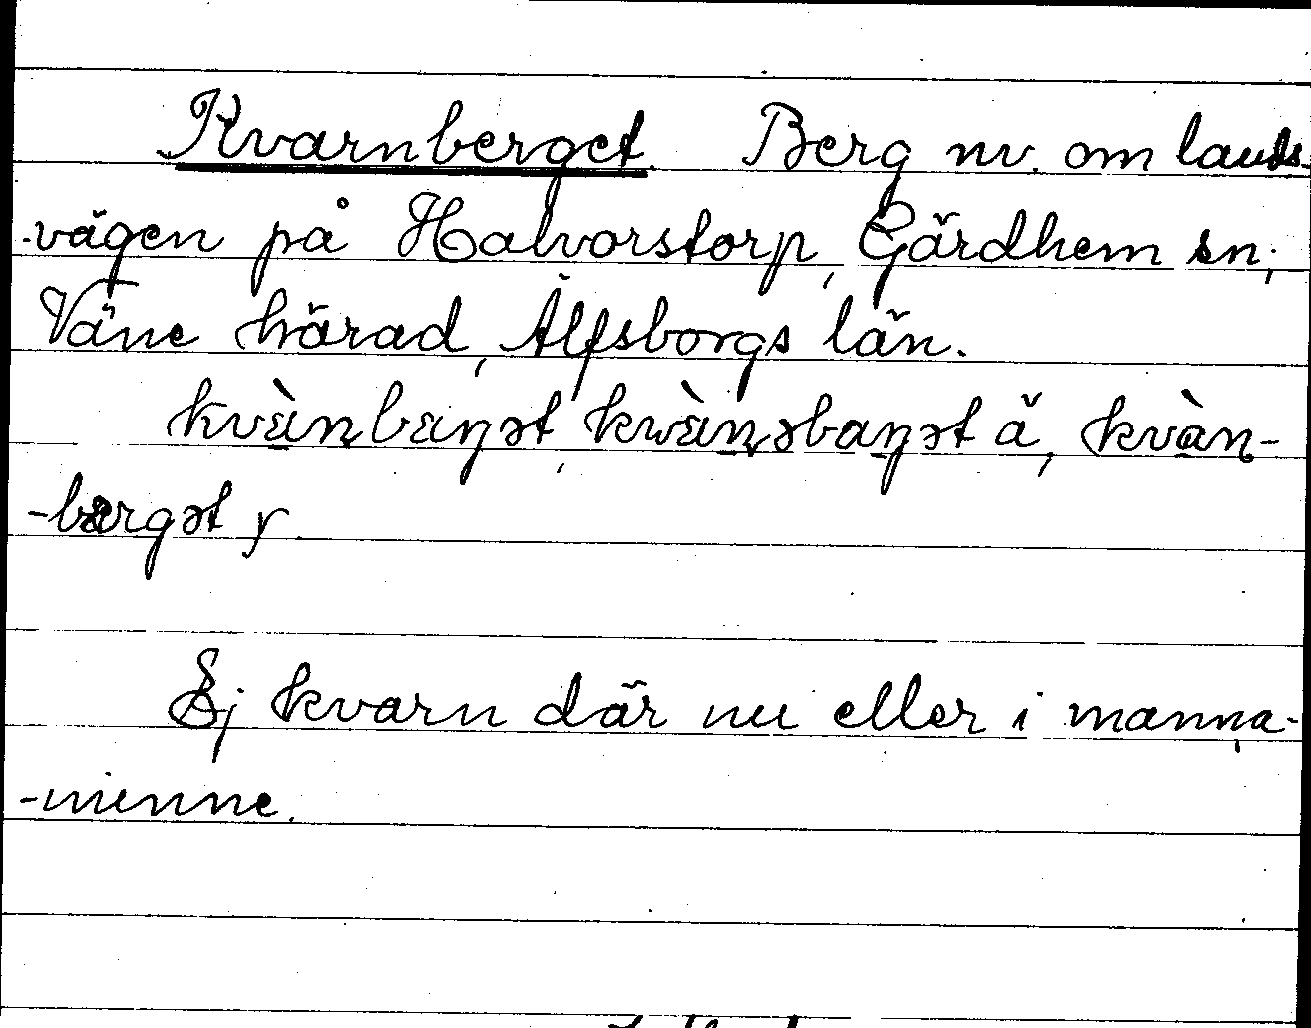 Kvarnberget. Berg nv. om lands-
-vägen på Halvorstorp, Gärdhem sn;
Väne härad, Älfsborgs län.
kvànbaŋət, kwànəbaŋət ä, kvàn-
-bærgət y
Ej kvarn där nu eller i manna-
-minne.